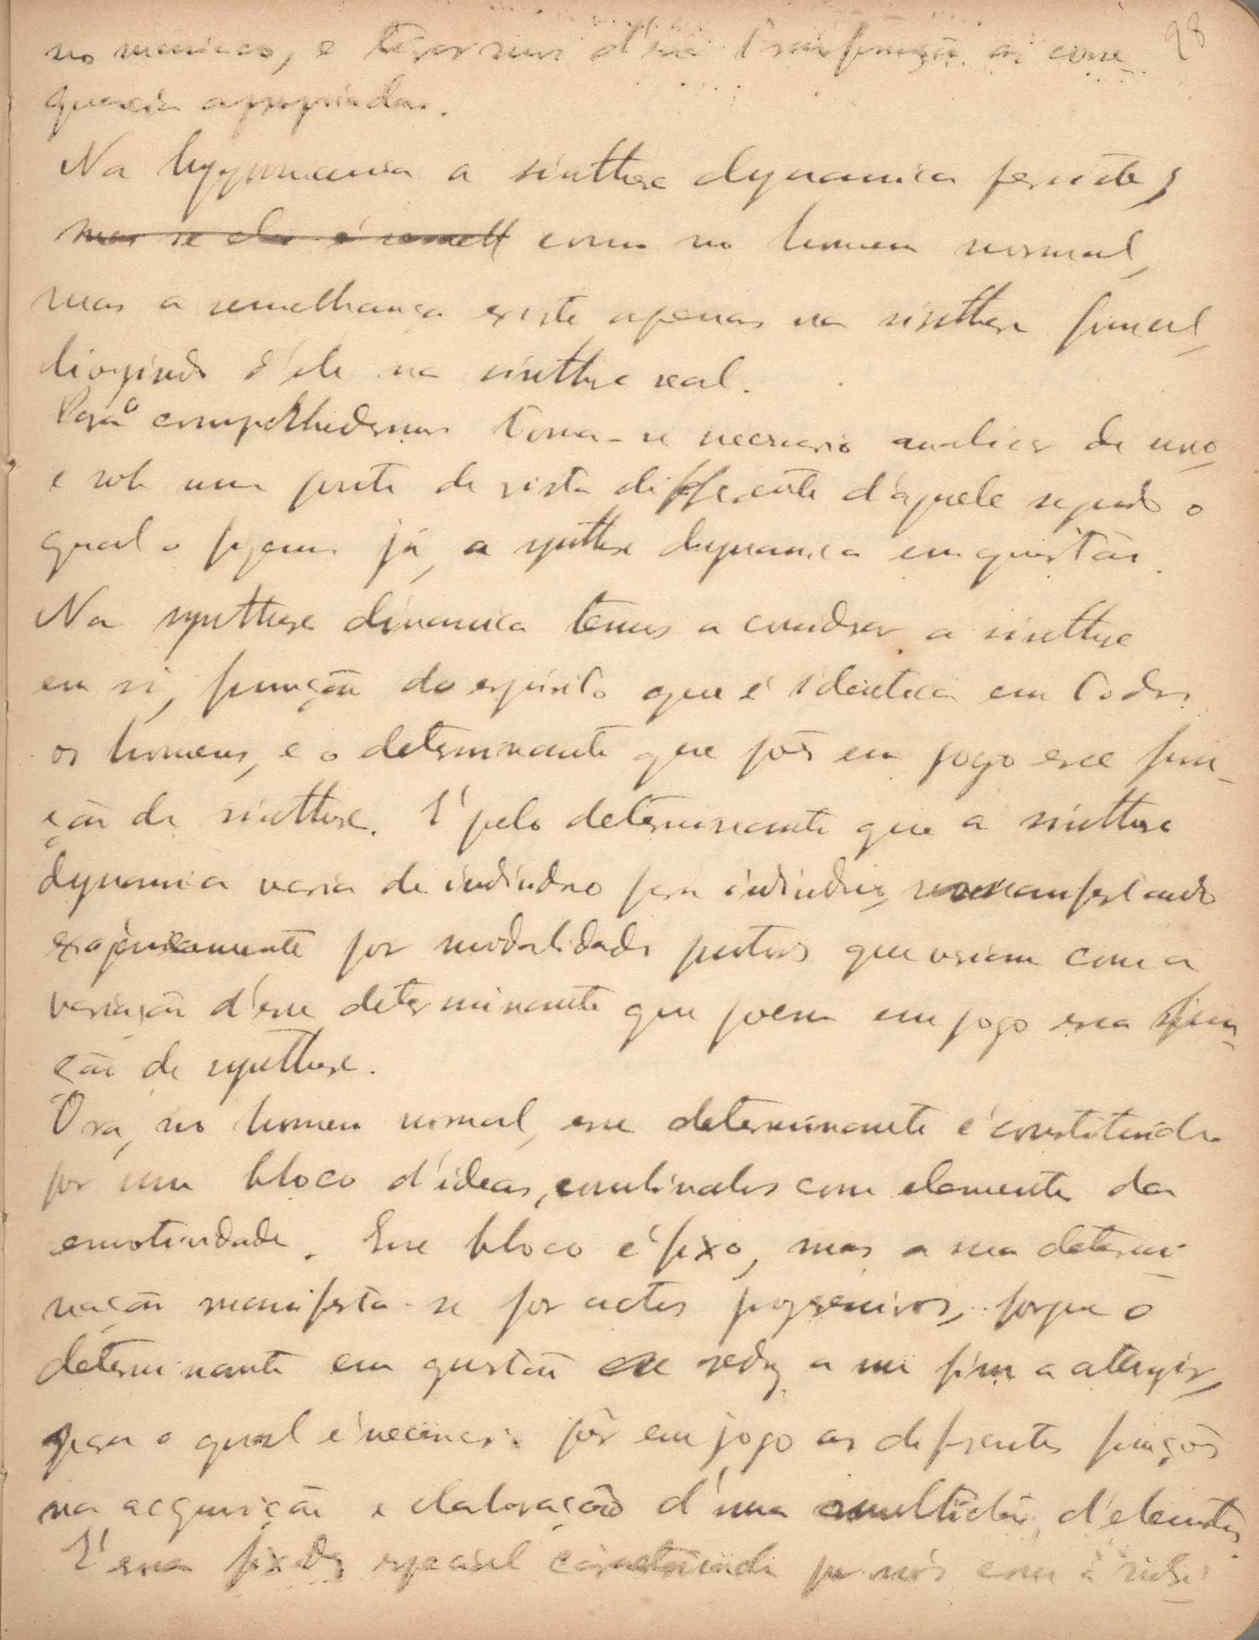 98
no maniaco, e d'esta transformação as conse-
quencias apropriadas.
Na hypomania a sinthese dynamica persiste,
mas se ella é como no homem normal,
mas a semelhança existe apenas na sinthese formal,
divergindo d'ele na sinthese real.
Para o comprehendermos torna-se necessario analisar de novo
e sob um ponto de vista differente d'aquele segundo o
qual o fizemos já, a synthese dynamica em questão.
Na synthese dinamica temos a considerar a sinthese
em si, funcção do espirito que é identica em todos
os homens, e o determinante que põe em jogo esse func-
ção de sinthese. É pelo determinante que a sinthese
dynamica varia de individuo para individuo, manifestando
por modalidades que variam com a
variação d'esse determinante que põem em jogo essa func-
ção de synthese.
Ora, no homem normal, esse determinante é constituido
por um bloco d'ideas, combinados com elementos da
emotividade. Esse bloco é fixo, mas a sua determi-
nação manifesta-se por actos progressivos, porque o
determinante em questão se reduz a um fim a atingir,
para o qual é necessario pôr em jogo as differentes funcções
na acquisição e elaboração d'uma multidão d'elementos.
É essa fixidez especial caracterisada por nós como